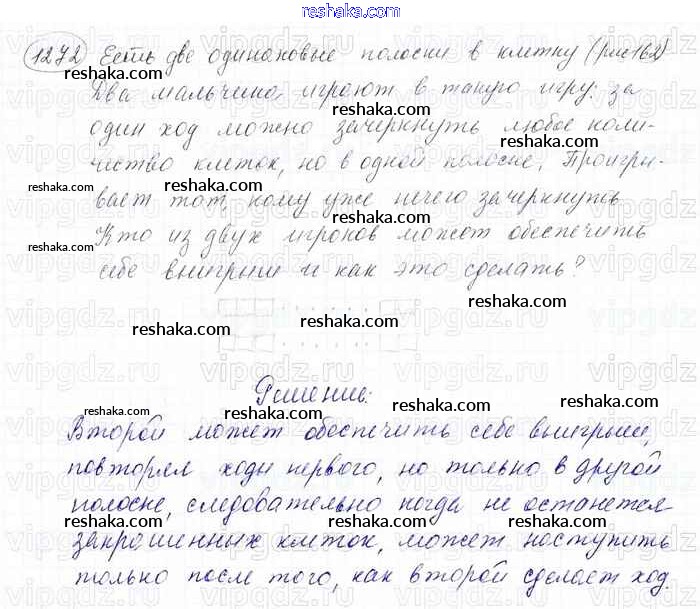 reshaka.com
1272 Есть две одинаковые полоски в клетку (рис 162)
reshaka.com reshaka.com
Два мальчика играют в такую игру: за
reshaka.com
один ход можно зачеркнуть любое коли-
reshaka.com
чество клеток, но в одной полоске. Проигры-
reshaka.com reshaka.com reshaka.com
вает тот, кому уже нечего зачеркнуть
Кто из двух игроков может обеспечить
reshaka.com
себе выигрыш и как это сделать?
reshaka.com
reshaka.com
Решение:
reshaka.com reshaka.com
Второй может обеспечить себе выигрыш,
reshaka.com
повторяя ходы первого, но только в другой
полоске, следовательно когда не останется
reshaka.com reshaka.com reshaka.com
закрашенных клеток, может наступить
reshaka.com
только после того, как второй сделает ход.